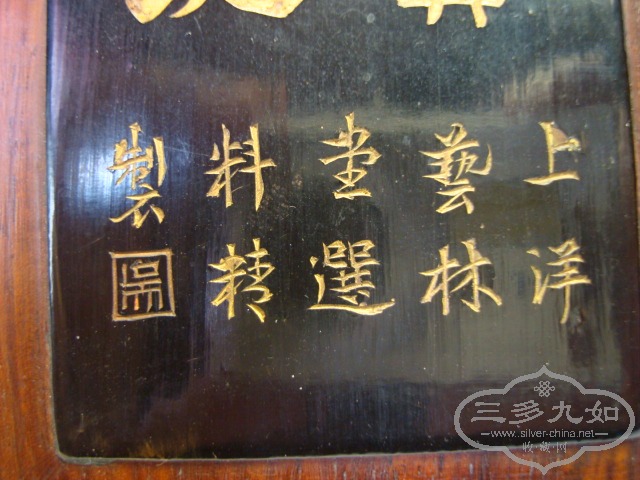 上洋
藝林
堂選
料精
製
三多九如
www.silver-china.net
收藏网